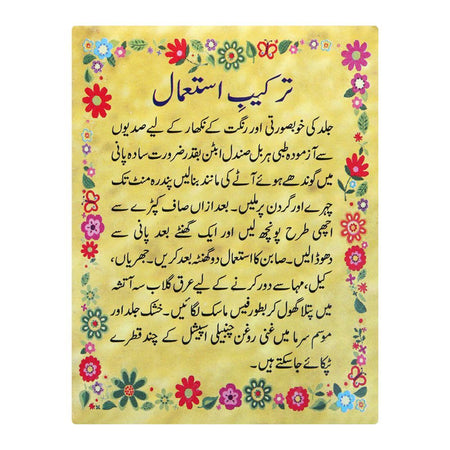 ترکیبِ استعمال
جلد کی خوبصورتی اور رنگت کے نکھار کے لیے صدیوں
سے آزمودہ طبی ہربل صندل ابٹن بقدر ضرورت سادہ پانی
میں گوندھے ہوئے آٹے کی مانند بنالیں پندرہ منٹ تک
چہرے اور گردن پر ملیں۔ بعد ازاں صاف کپڑے سے
اچھی طرح پونچھ لیں اور ایک گھنٹے بعد پانی سے
دھو ڈالیں۔ صابن کا استعمال دو گھنٹہ بعد کریں۔ جھریاں،
کیل، مہاسے دور کرنے کے لیے عرق گلاب سہ آتشہ
میں پتلا گھول کر بطور فیس ماسک لگائیں۔ خشک جلد اور
موسم سرما میں غنی روغن چنبیلی اسپیشل کے چند قطرے
ٹپکائے جاسکتے ہیں۔